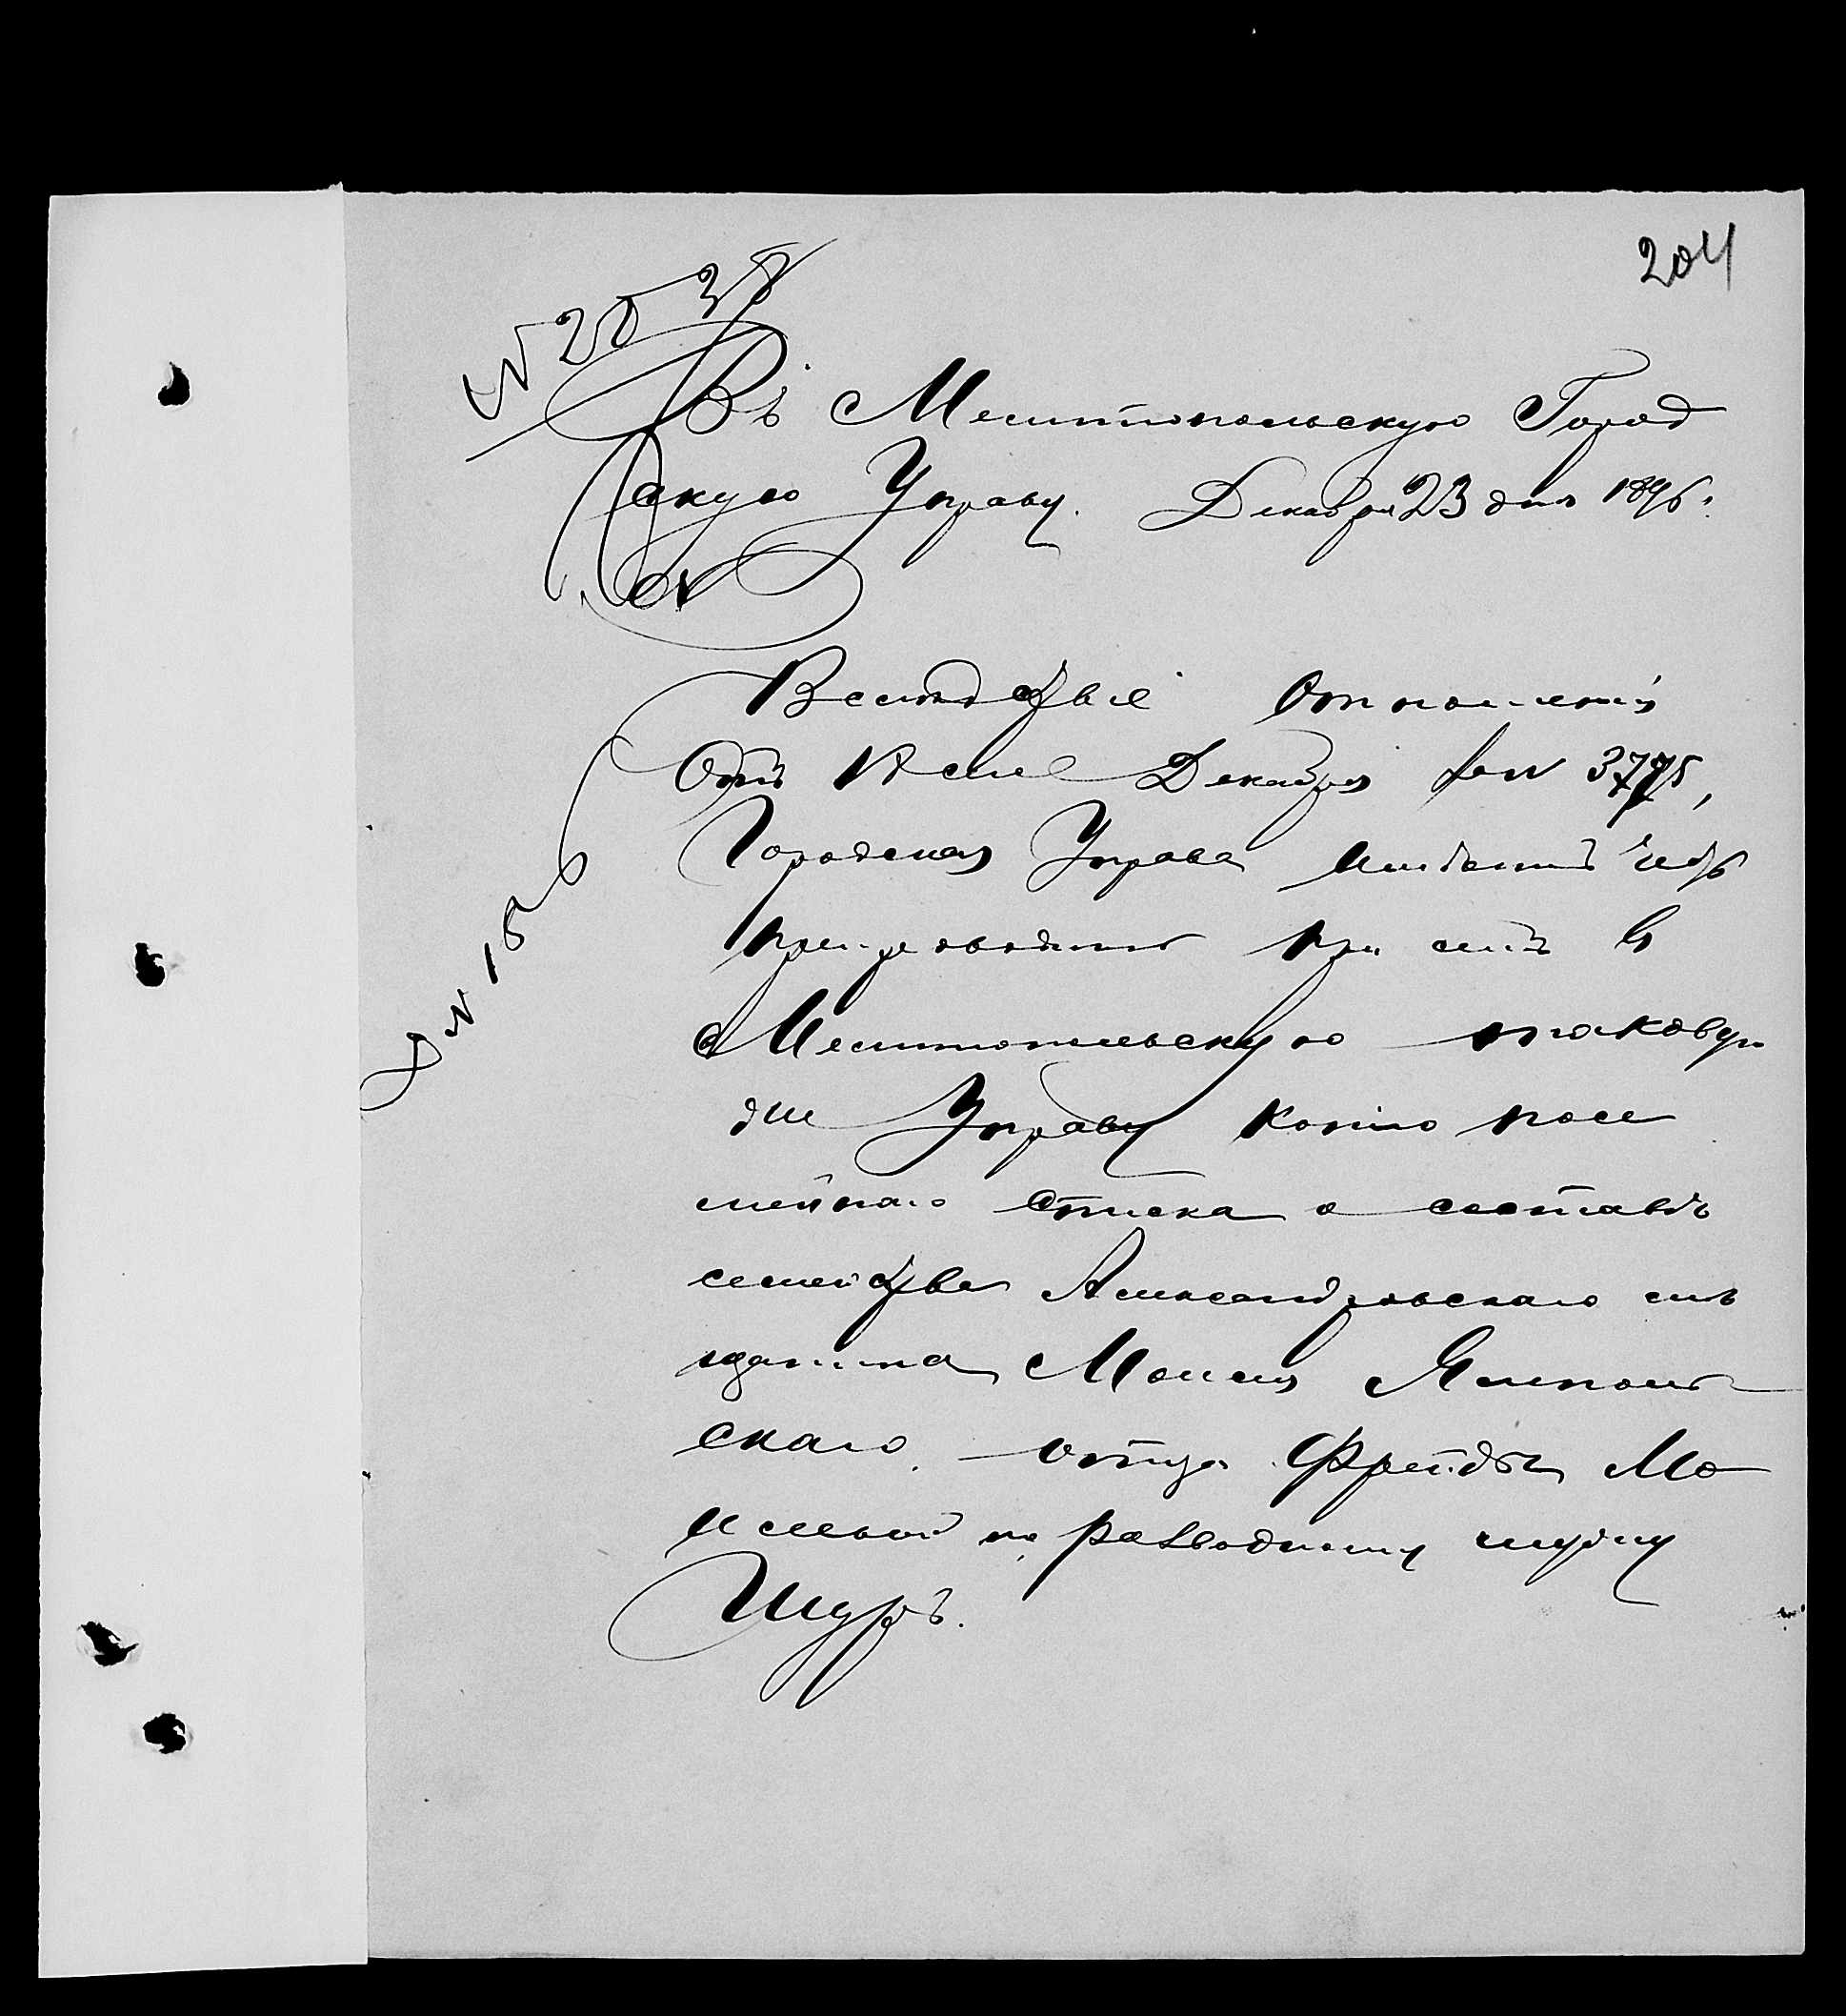 204
№ 2538
Въ Мелитопольскую Город
скую Управу. Декабря 23 дня 1896 г.
Вследствіе отношенія
Отъ сего Декабря за № 3775,
Городская Управа имѣетъ честь
препроводить при семъ въ
Мелитопольскую таковую
же Управу копію посе
мейнаго списка о составѣ
семейства Александровскаго мѣ
щанина Моисея Ямполь
скаго отца Фрейды Мо
исеевой по разводному мужу
Шуръ.